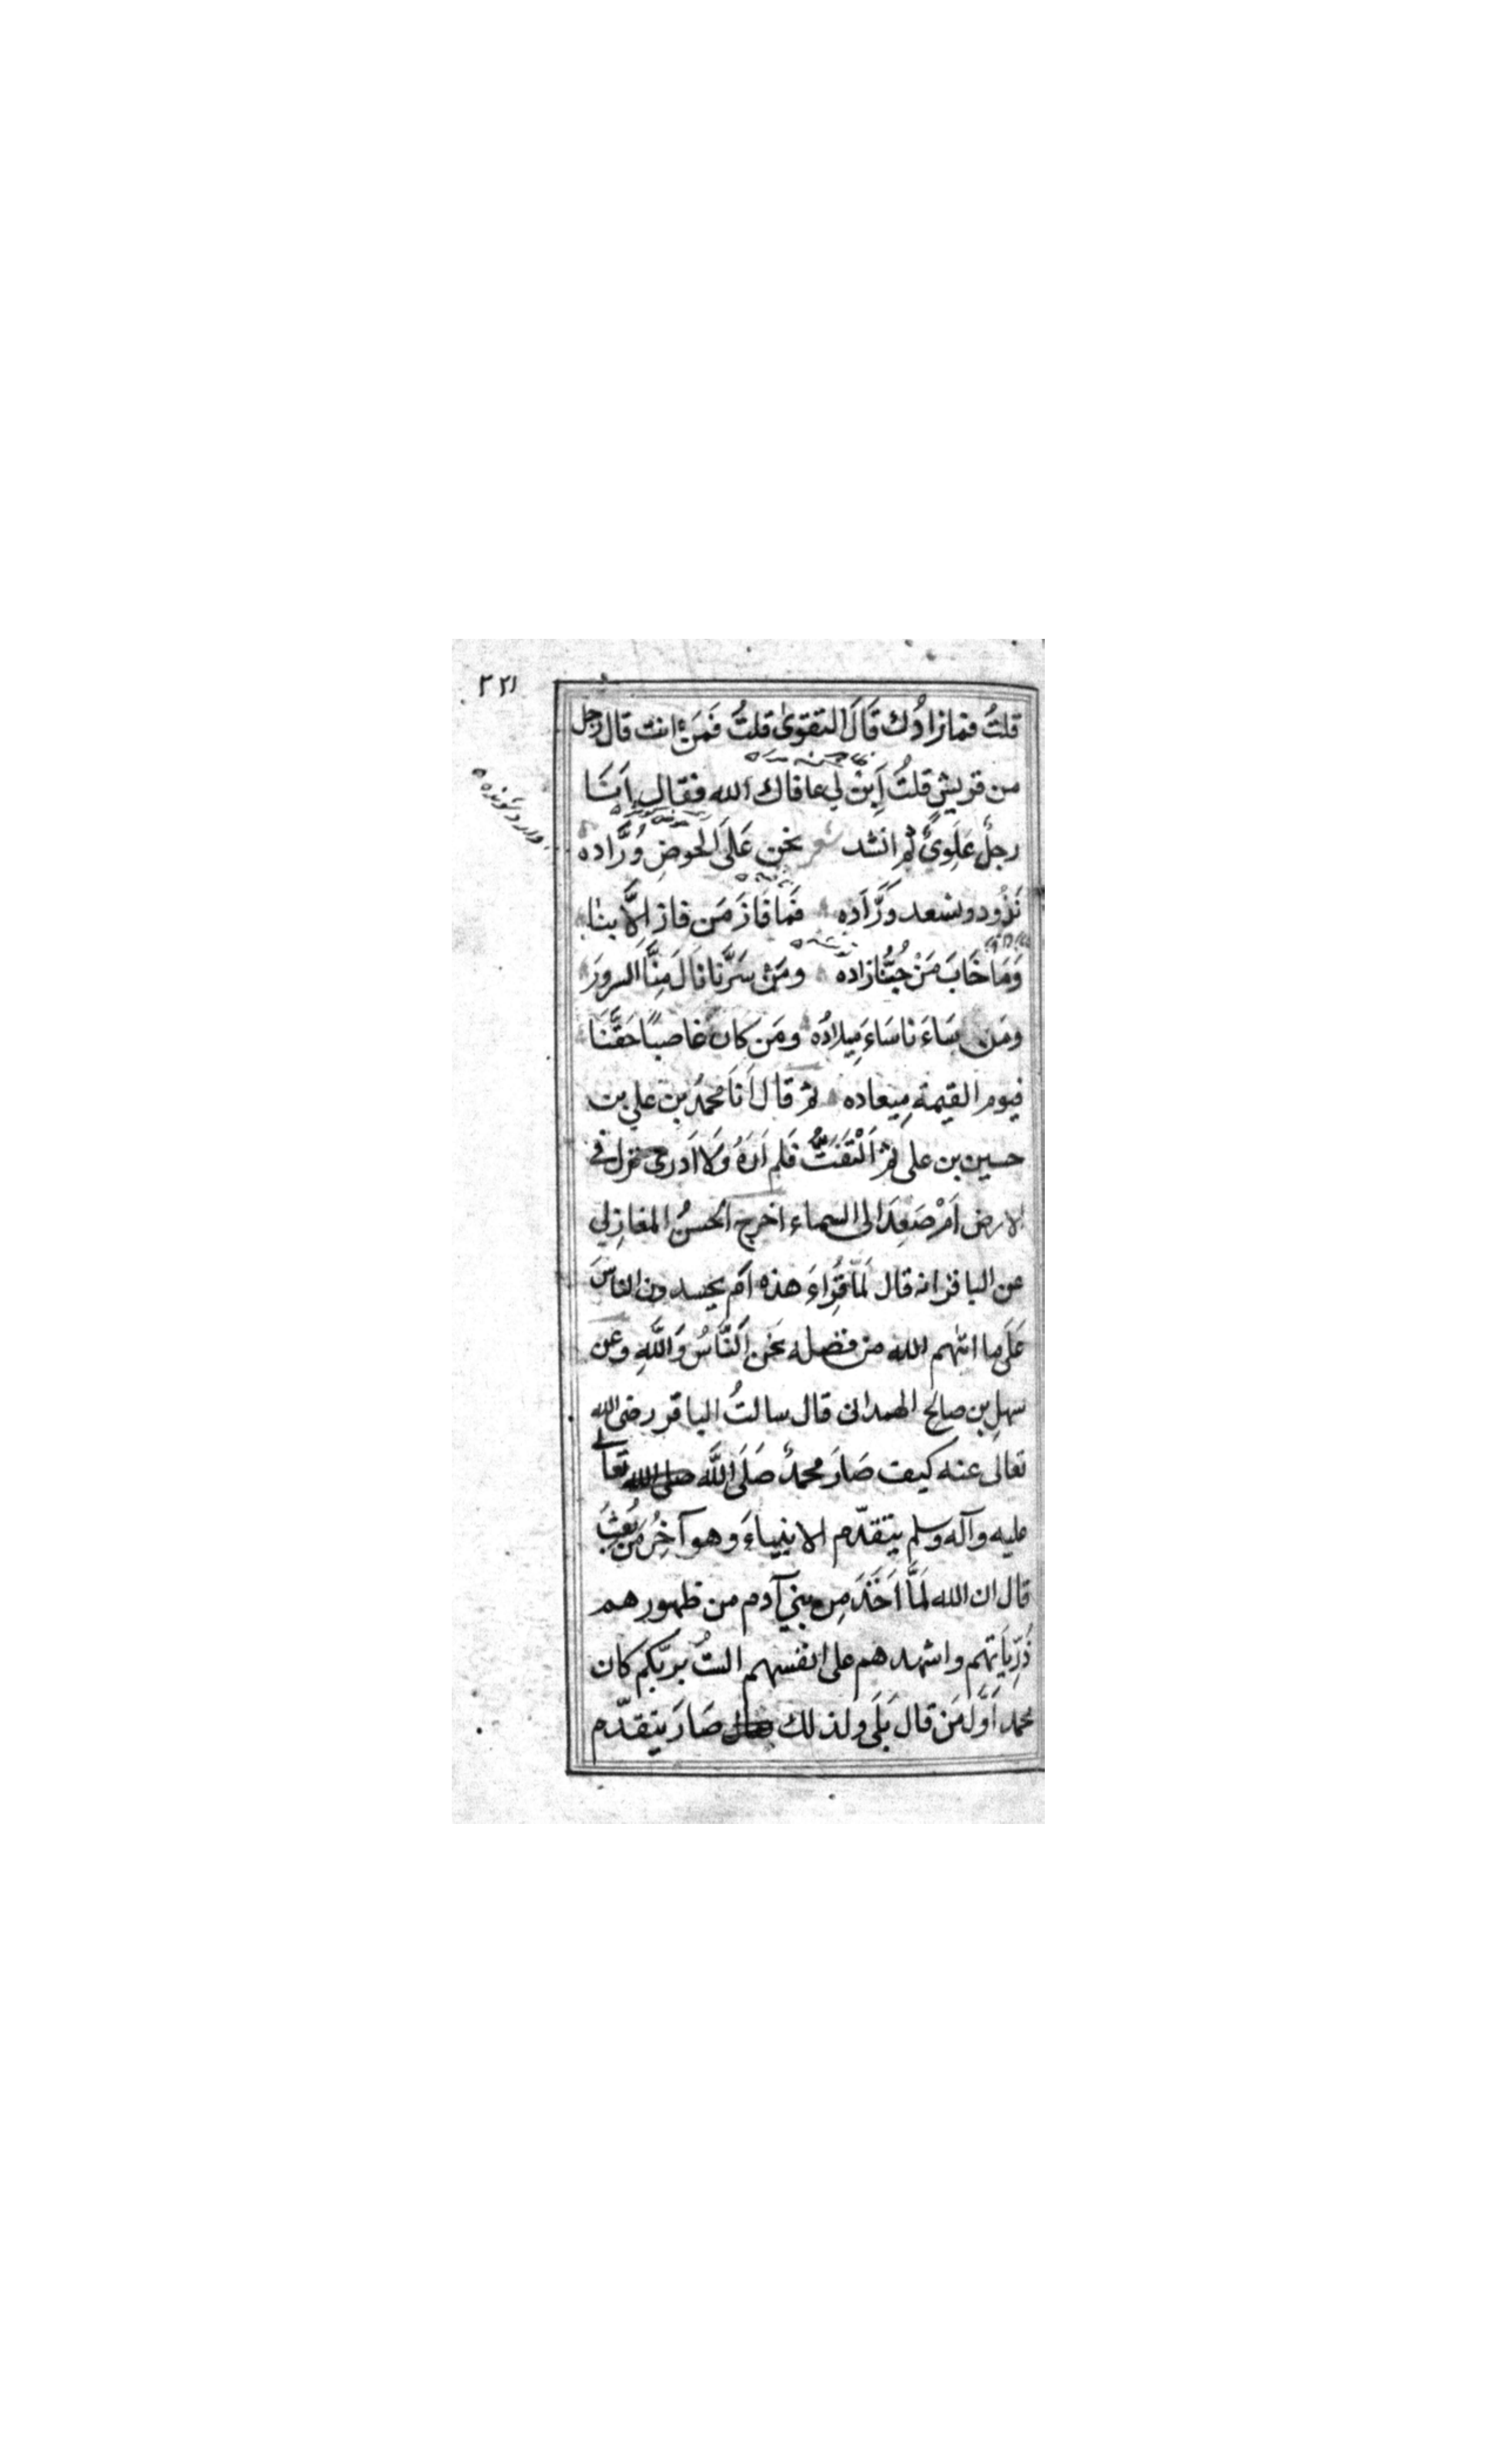 ٢٢١
قلتُ فمازادُك قَالَ التقوىٰ قلتُ فَمَنْ انت قال رجل
من قريشٍ قلتُ اَبِنْ لي عافاك الله فقال اَنَا
رجلٌ عَلَوِيٌ ثم انشد شعر نحن عَلَى الحوضِ وُرَّاده
نَذُودو نسعد وَرَّادَه فَمَا فَازَ مَن فاز اِلَّا بنا
وَمَا خَابَ مَنْ حُبُّنا زاده ومَنْ سَرَّنا نَالَ مِنَّا السرورَ
ومَن سَاءَنا سَاءَ مِيلادُه ومَن كان غاصبًا حَقَّنَا
فيوم القيمة مِيعاده ثم قال اَنَا محمدُ بن علي بن
حسين بن على ثم اَلْتَفَتُّ فَلم اَرَهُ وَلا اَدرى نزل في
الارض اَمْ صَعِدَ الى السماء اخرج الحسنُ المغازِلي
عن الباقر انه قال لَمَّا قُرِاءَ هذه اَم يحسدون الناسَ
عَلَى ما اتٰهم الله من فضله نَحن اَلنَّاسُ وَاللهِ وعن
سهلِ بن صالح الهمدانى قال سالتُ الباقر رضى الله
تعالى عنه كيف صَارَ محمدٌ صَلَى اللَّه صلى الله تعالى
عليه وآله وسلم يتقدّم الانبياءَ وهو آخِرُ مَن بُعِثَ
قال ان الله لَمَّا اَخَذَ مِن بني آدم من ظهورهم
ذُرِّيَاتِهم واشهدهم على انفسهم الستُ بربّكم كان
محمد اَوَّلَ مَن قال بَلَى ولذلك صَارَ يتقدّم